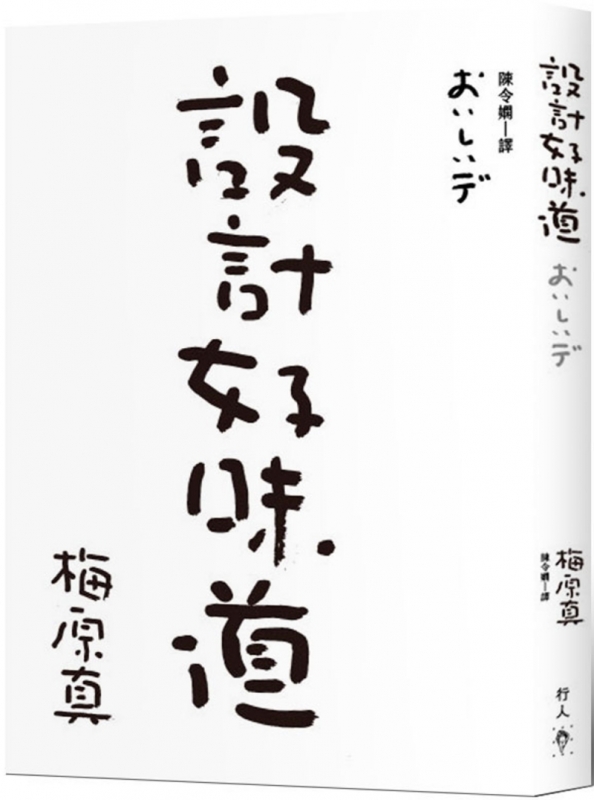 陳令嫻—譯
おいしいデ
設計好味道
梅原真
設計好味道
おいしいデ
梅原真
陳令嫻—譯
行人